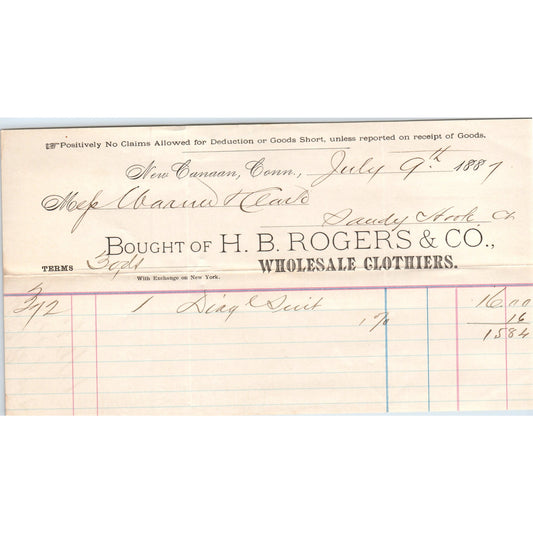 ☞Positively No Claims Allowed for Deduction or Goods Short, unless reported on receipt of Goods.
New Canaan, Conn., July 9th 1887
Mess Warner & Clark
Sandy Hook Ct.
BOUGHT OF H. B. ROGERS & CO.,
TERMS 30 ds WHOLESALE CLOTHIERS.
With Exchange on New York.
372 1 Diagl Suit 16.00
1% 16
1584